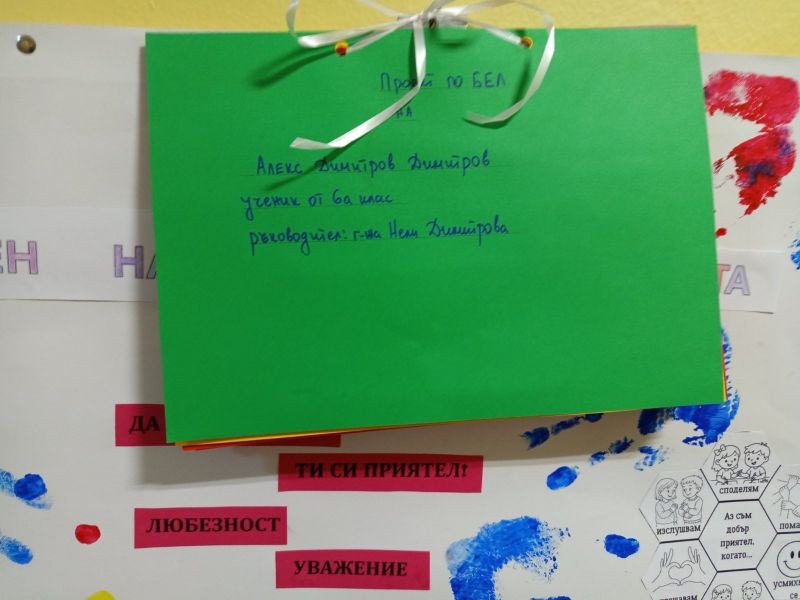 Проект по БЕЛ
на
Алекс Димитров Димитров
ученик от 6а клас
ръководител: г-жа Нели Димитрова
ЕН НА ТА
ДА
ТИ СИ ПРИЯТЕЛ!
ЛЮБЕЗНОСТ
УВАЖЕНИЕ
споделям
изслушвам
Аз съм
добър
приятел,
когато...